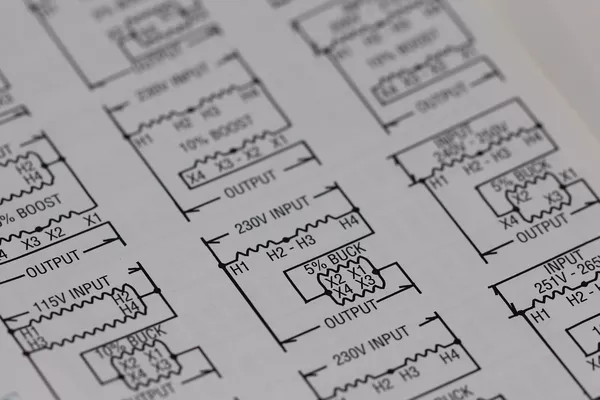 OUTPUT
230V INPUT
H1 H2 H3 H4
10% BOOST
X4 X3 - X2 X1
OUTPUT
10% BOOST
OUTPUT
INPUT
240V - 250V
H1 H2 - H3 H4
5% BUCK
X2 X1
X4 X3
OUTPUT
H2
H4
% BOOST
X3 X2 X1
OUTPUT
230V INPUT
H1 H2 - H3 H4
5% BUCK
X2 X1
X4 X3
OUTPUT
115V INPUT
H1 H2
H3 H4
10% BUCK
X2 X1
X4 X3
OUTPUT
INPUT
251V - 265
H1 H2 -
230V INPUT
H2 H3 H4
BUCK